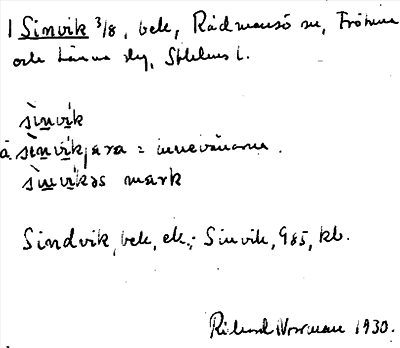 1 Sinvik 3/8, bek, Rådmansö sn, Frötuna
och Länna skg, Sthlms l.
sìnvik
å sìnvikjara = innevånarna.
sìnvikəs mark
Sindvik, bek, ek; Sinvik, G85, kb.
Rikard Norman 1930.